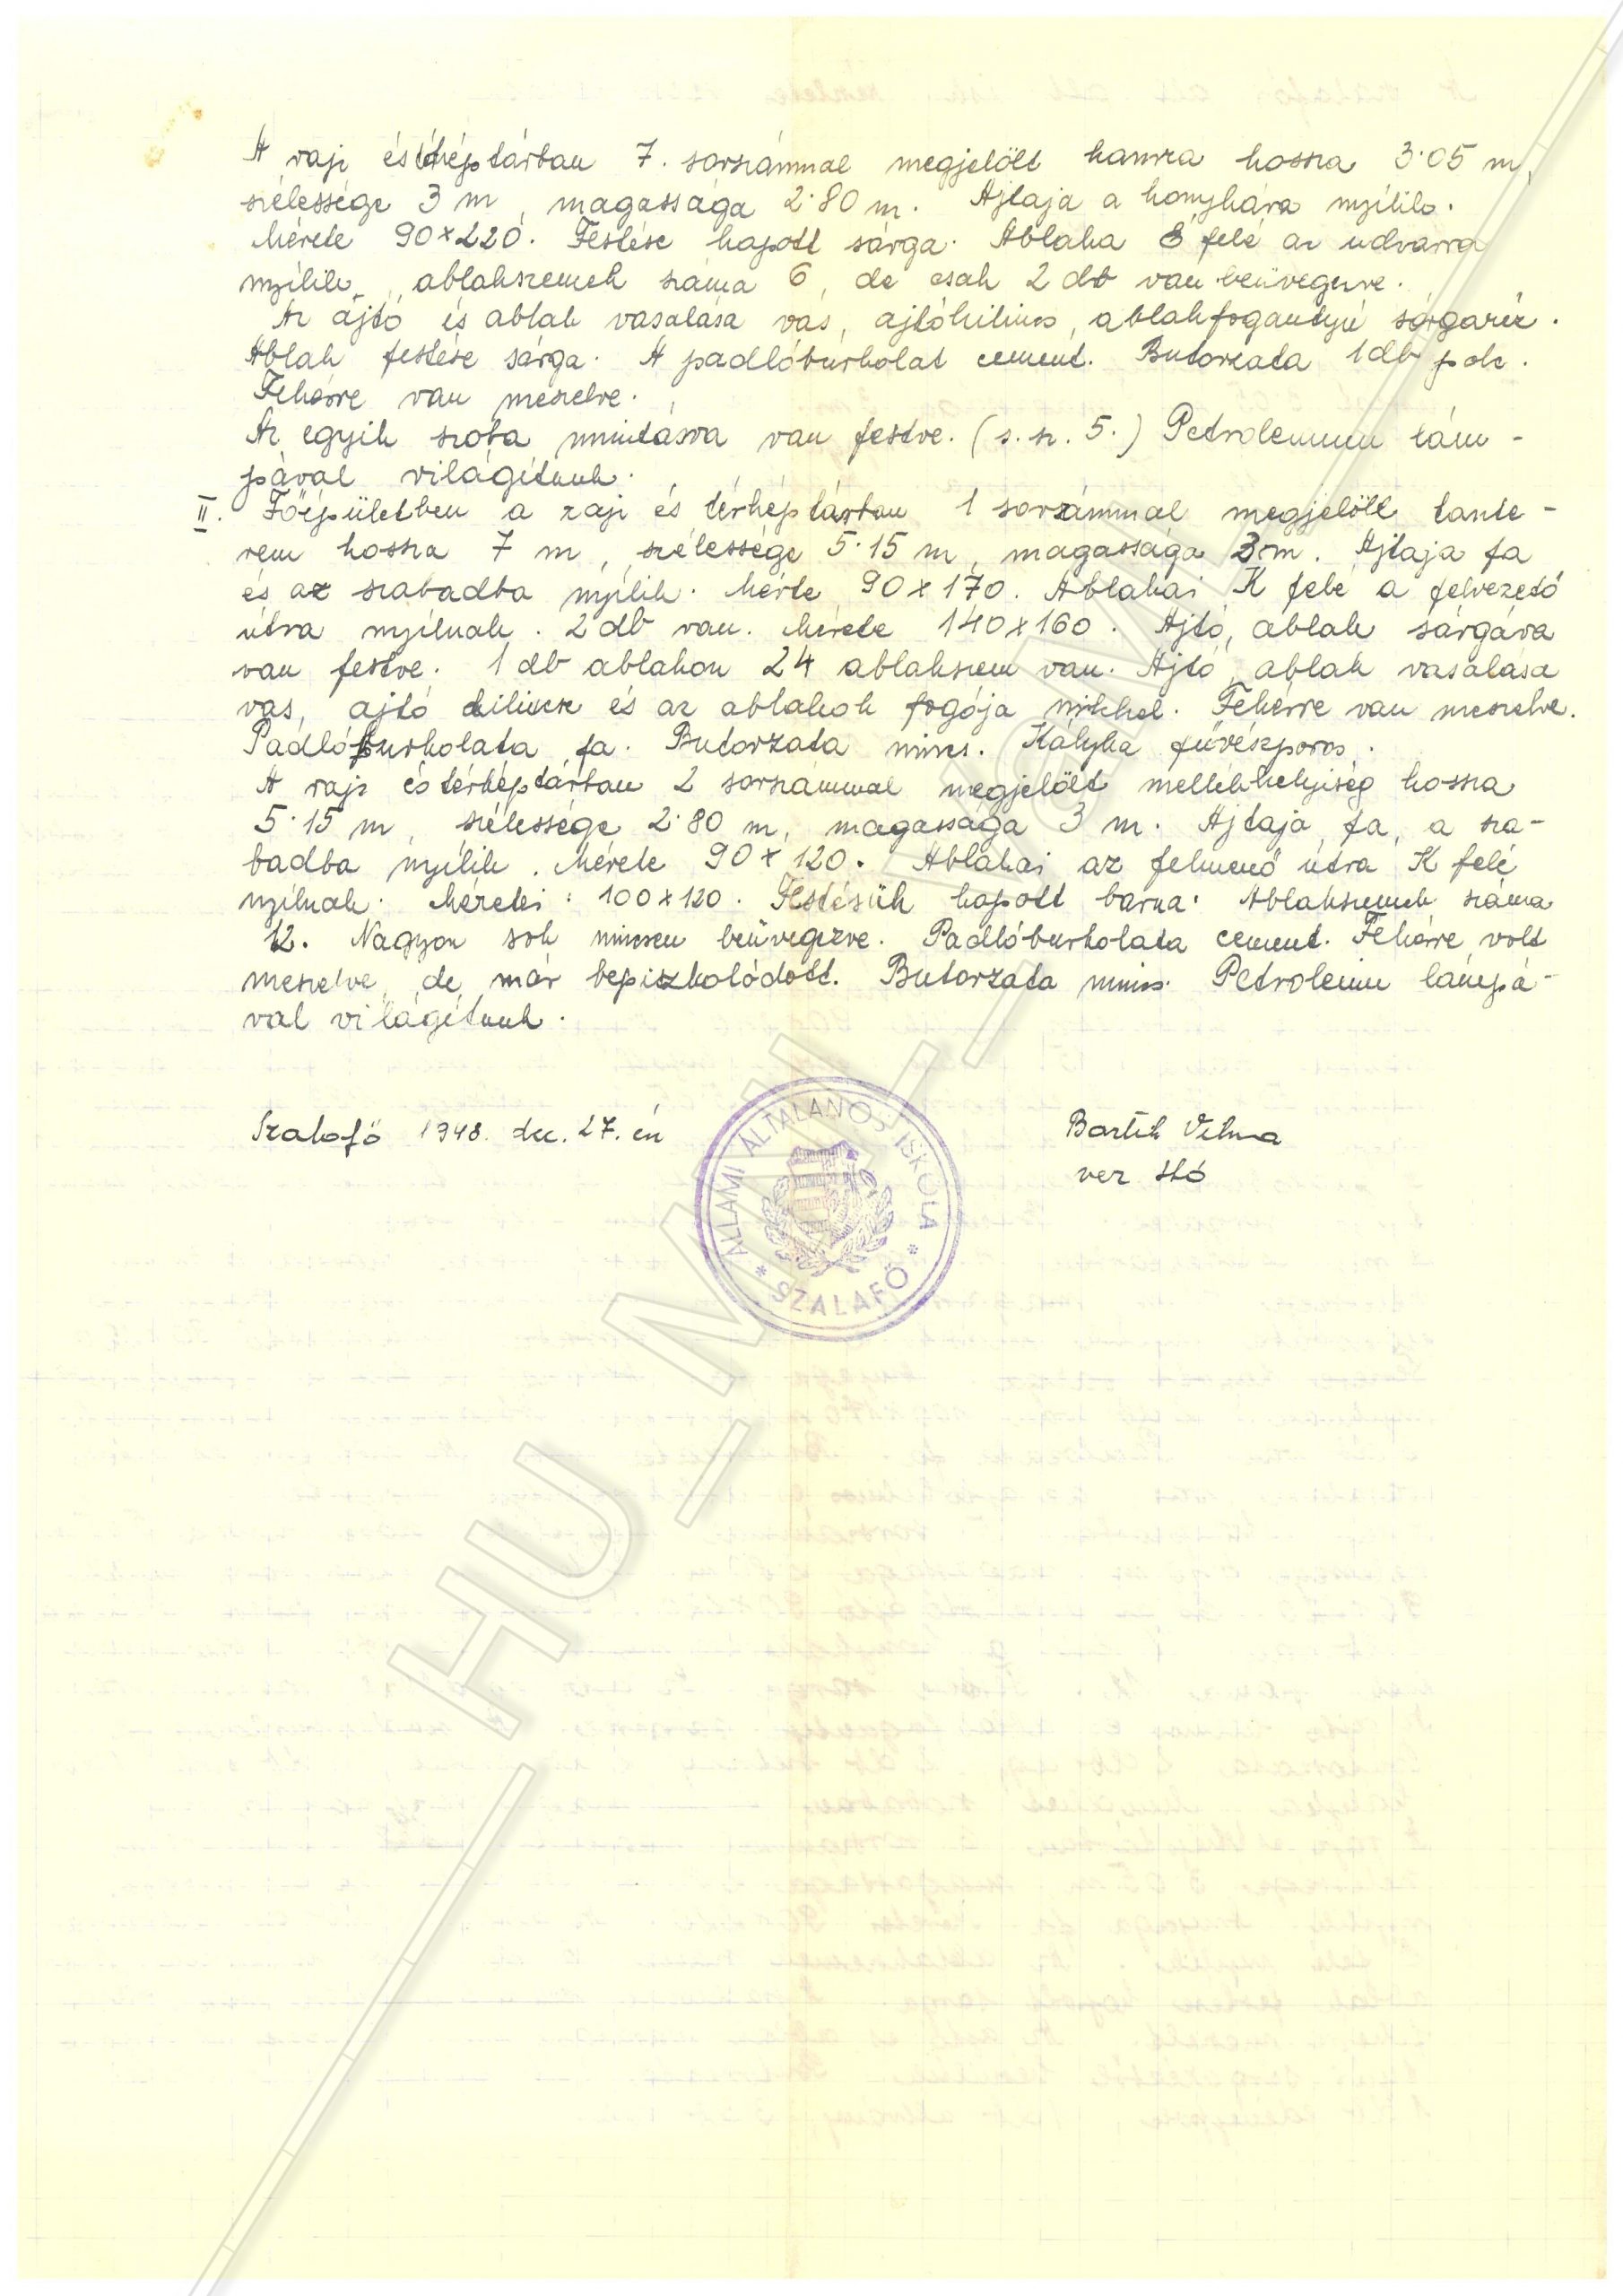 A rajz és térképtárban 7. sorszámmal megjelölt kamra hossza 3·05 m,
szélessége 3 m, magassága 2·80 m. Ajtaja a konyhára nyílik.
Mérete 90x220. Festése kopott sárga. Ablaka É felé az udvarra
nyílik, ablakszemek száma 6, de csak 2 db van beüvegezve.
Az ajtó és ablak vasalása vas, ajtókilincs, ablakfogantyú sárgaréz.
Ablak festése sárga. A padlóburkolat cement. Butorzata 1 db polc.
Fehérre van meszelve.
Az egyik szoba mintásra van festve. (s. sz. 5.) Petroleumm lám-
pával világítunk.
II. Főépületben a rajz és térképtárban 1 sorszámmal megjelölt tante-
rem hossza 7 m, szélessége 5·15 m, magassága 3 m. Ajtaja fa
és az szabadba nyílik. Mérte 90x170. Ablakai K felé a felvezető
útra nyílnak. 2 db van. Mérete 140x160. Ajtó, ablak sárgára
van festve. 1 db ablakon 24 ablakszem van. Ajtó, ablak vasalása
vas, ajtó kilincse és az ablakok fogója nikkel. Fehérre van meszelve.
Padlóburkolata fa. Butorzata nincs. Kályha fűrészporos.
A rajz és térképtárban 2 sorszámmal megjelölt mellékhelyiség hossza
5·15 m, szélessége 2·80 m, magassága 3 m. Ajtaja fa, a sza-
badba nyílik. Mérete 90x120. Ablakai az felmenő útra K felé
nyílnak. Méretei: 100x120. Festésük kopott barna. Ablakszemek száma
12. Nagyon sok nincsen beüvegezve. Padlóburkolata cement. Fehérre volt
meszelve, de már bepiszkolódott. Butorzata nincs. Petroleum lámpá-
val világítunk.
Szalafő 1948. dec. 27. én
Bartik Vilma
vez tkó
ÁLLAMI ÁLTALÁNOS ISKOLA
* SZALAFŐ *
HU_MNL_